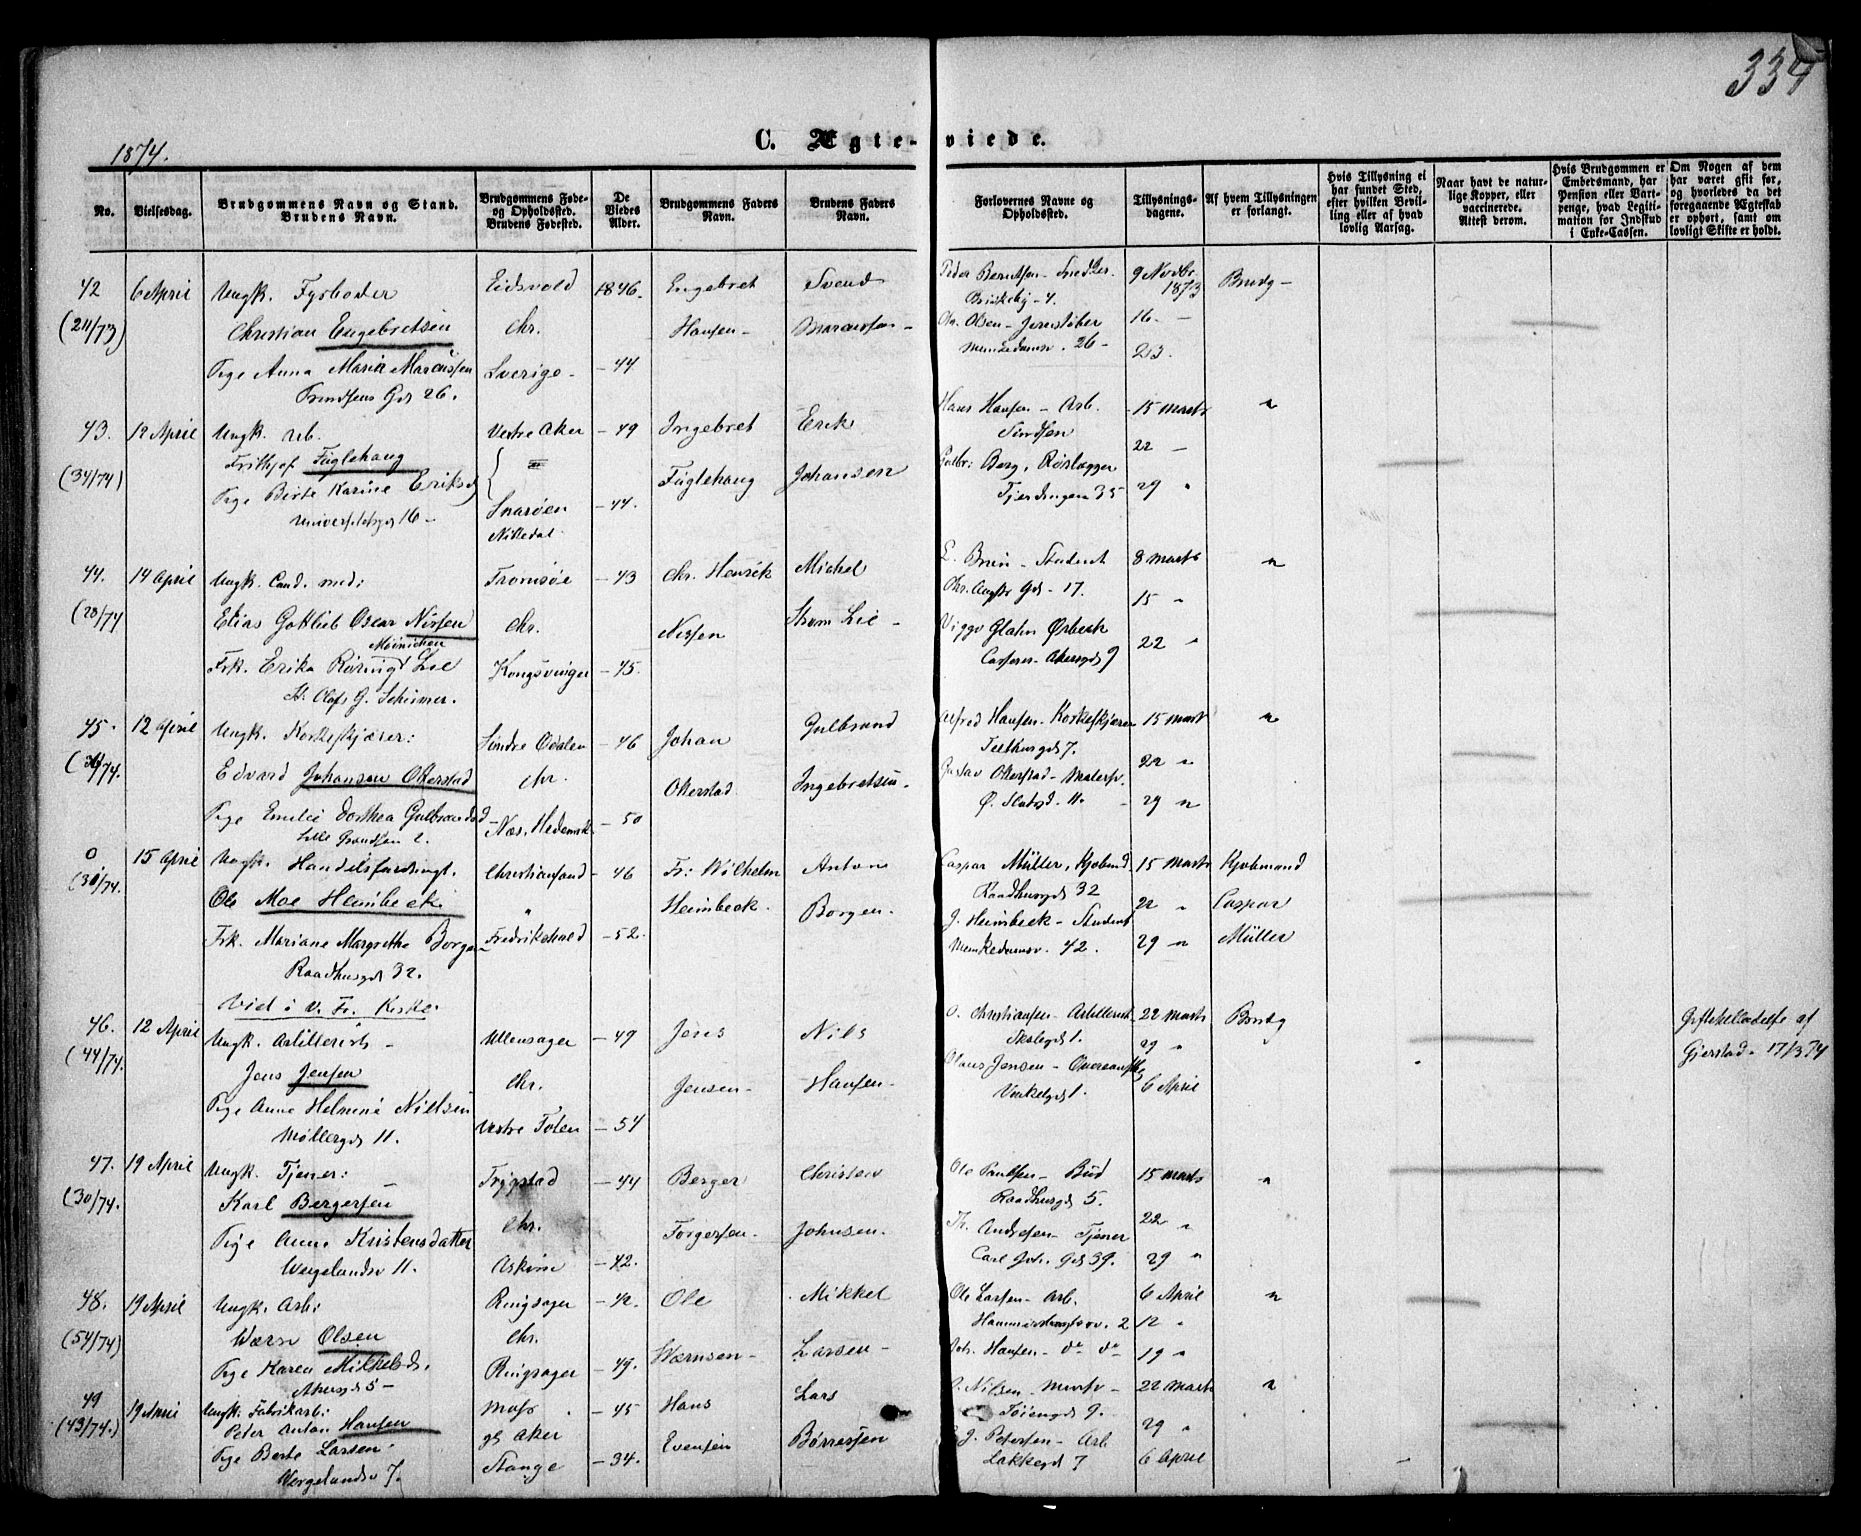 334
1874.
C. Ægte-viede.
No.
Vielsesdag.
Brudgommens Navn og Stand.
Brudens Navn.
Brudgommens Føde-
og Opholdssted.
Brudens Fødested.
De
Viedes
Alder.
Brudgommens Faders
Navn.
Brudens Faders
Navn.
Forlovernes Navne og
Opholdssted.
Tillysnings-
dagene.
Af hvem Tillysningen
er forlangt.
Hvis Tillysning ei
har fundet Sted,
efter hvilken Bevil-
ling eller af hvad
lovlig Aarsag.
Naar havt de natur-
lige Kopper, eller
vaccinerede.
Attest derom.
Hvis Brudgommen er
Embedsmand, har
Pension eller Vart-
penge, hvad Legiti-
mation for Indskud
i Enke-Cassen.
Om Nogen af dem
har været gift før,
og hvorledes da det
foregaaende Ægteskab
er ophørt, samt om
lovligt Skifte er holdt.
42 6 April Ungk. Fyrbøder Eidsvold 1846. Engebret Svend Peder Berntsen - Snedker. 9 Novbr. 1873 Brudg -
(211/73) Christian Engebretsen Chr. Hansen - Marcussen - Briskeby - 4.
Olsen - Jernstøber 16. -
Pige Anna Maria Marcussen Sverige - - 44 Munkedamsv. 26 - 23.
Gd 26.
43. 12 April Ungk. Arb. Vestre Aker - 49 Ingebret Erik Hans Hansen - Arb. - 15 Marts "
(34/74) Frithjof Fuglehaug Fuglehaug Johansen 22 -
Gulbr: Berg, Rørlægger
Pige Berte Karine Eriksd Snarøen - 44. Fjerdingen 35 29 "
Universitetsgd 16 - Nittedal
44. 14 April Ungk. Cand. med: Tromsøe - 43 Chr. Henrik Michel E. Bruun - Student 8 Marts "
(28/74) Elias Gottlieb Oscar Nissen Chr. Nissen Strøm Lie - Chr. Augts Gd - 17. 15 "
Møinichen Viggo Glahn Ørbeck 22 "
Frk. Erika Rørvigt Lie Kongsvinger - 45. Casserer - Akersgd 9
St. Olafs G. Schirmer.
45. 12 April Ungk. Korkeskjærer: Søndre Odalen - 46 Johan Gulbrand Alfred Hansen - Korkeskjærer 15 Marts "
Edvard Johansen Okerstad Chr. Okerstad Ingebretsen - Tolthusgd 7. 22 "
Gustav Okerstad - Malersv.
Pige Emilie Dorthea Gulbrandsd - Næs, Hedemk. - 50 Ø. Slotsgd. 11. 29 "
Lille Grændsen 2.
0 15 April Ungk. Handelsfuldmægt. Christiansand - 46 Fr: Wilhelm Anton Caspar Müller, Kjøbmd 15 Marts Kjøbmand
(30/74. Ole Moe Heimbeck " Heimbeck. Borgen. Raadhusgd 32 22 " Caspar
J. Heimbeck - Student
Frk. Mariane Margrethe Borgen Fredrikshald - 52. Munkedamsv. 42. 29 " Müller
Raadhusgd 32.
Vied i V. Fr. Kirke.
46. 12 April Ungk. Artillerist - Ullensager - 49 Jens Nils O. Christiansen - Artillerist 22 Marts Brudg Giftetilladelse af
(44/74. Jens Jensen Chr. Jensen - Hansen - Skolegd 1. 29 " Gjerstad - 17/3 74
Olaus Jensen -
Pige Anne Helmine Nielsen Vestre Toten - 54 Vinkelgd 1. 6 April
Møllergd 11.
47. 19 April Ungk. Tjener: Trygstad - 44 Berger Christen Ole Paulsen - Bud 15 Marts "
(30/74. Karl Bergersen Chr. Torgersen - Johnsen. Raadhusgd 5. 22 "
Th. Andresen - Tjener
Pige Anne Kristensdatter Askim - 42. Carl Joh. Gd 39. 29 "
Wergelandsv 11.
48. 19 April Ungk. Arb: Ringsager - 42 Ole Mikkel Ole Larsen - Arb. 6 April "
(54/74) Wærn Olsen Chr. Wærnsen - Larsen - 2 12 "
Pige Karen Mikkelsd. Ringsager - 49. Joh. Hansen - do do 19 "
Akersgd 5 -
49 19 April Ungk. Fabrikarb: Moss - 45 Hans Lars O. Nilsen - Murersv - 22 Marts "
(43/74.) Peter Anton Hansen gl. Aker Evensen Børresen Tøiengd 9. 29 "
Pige Berte Larsen Stange - 34. J. Petersen - Arb
Wergelandsv 7. Lakkegd 7 6 April